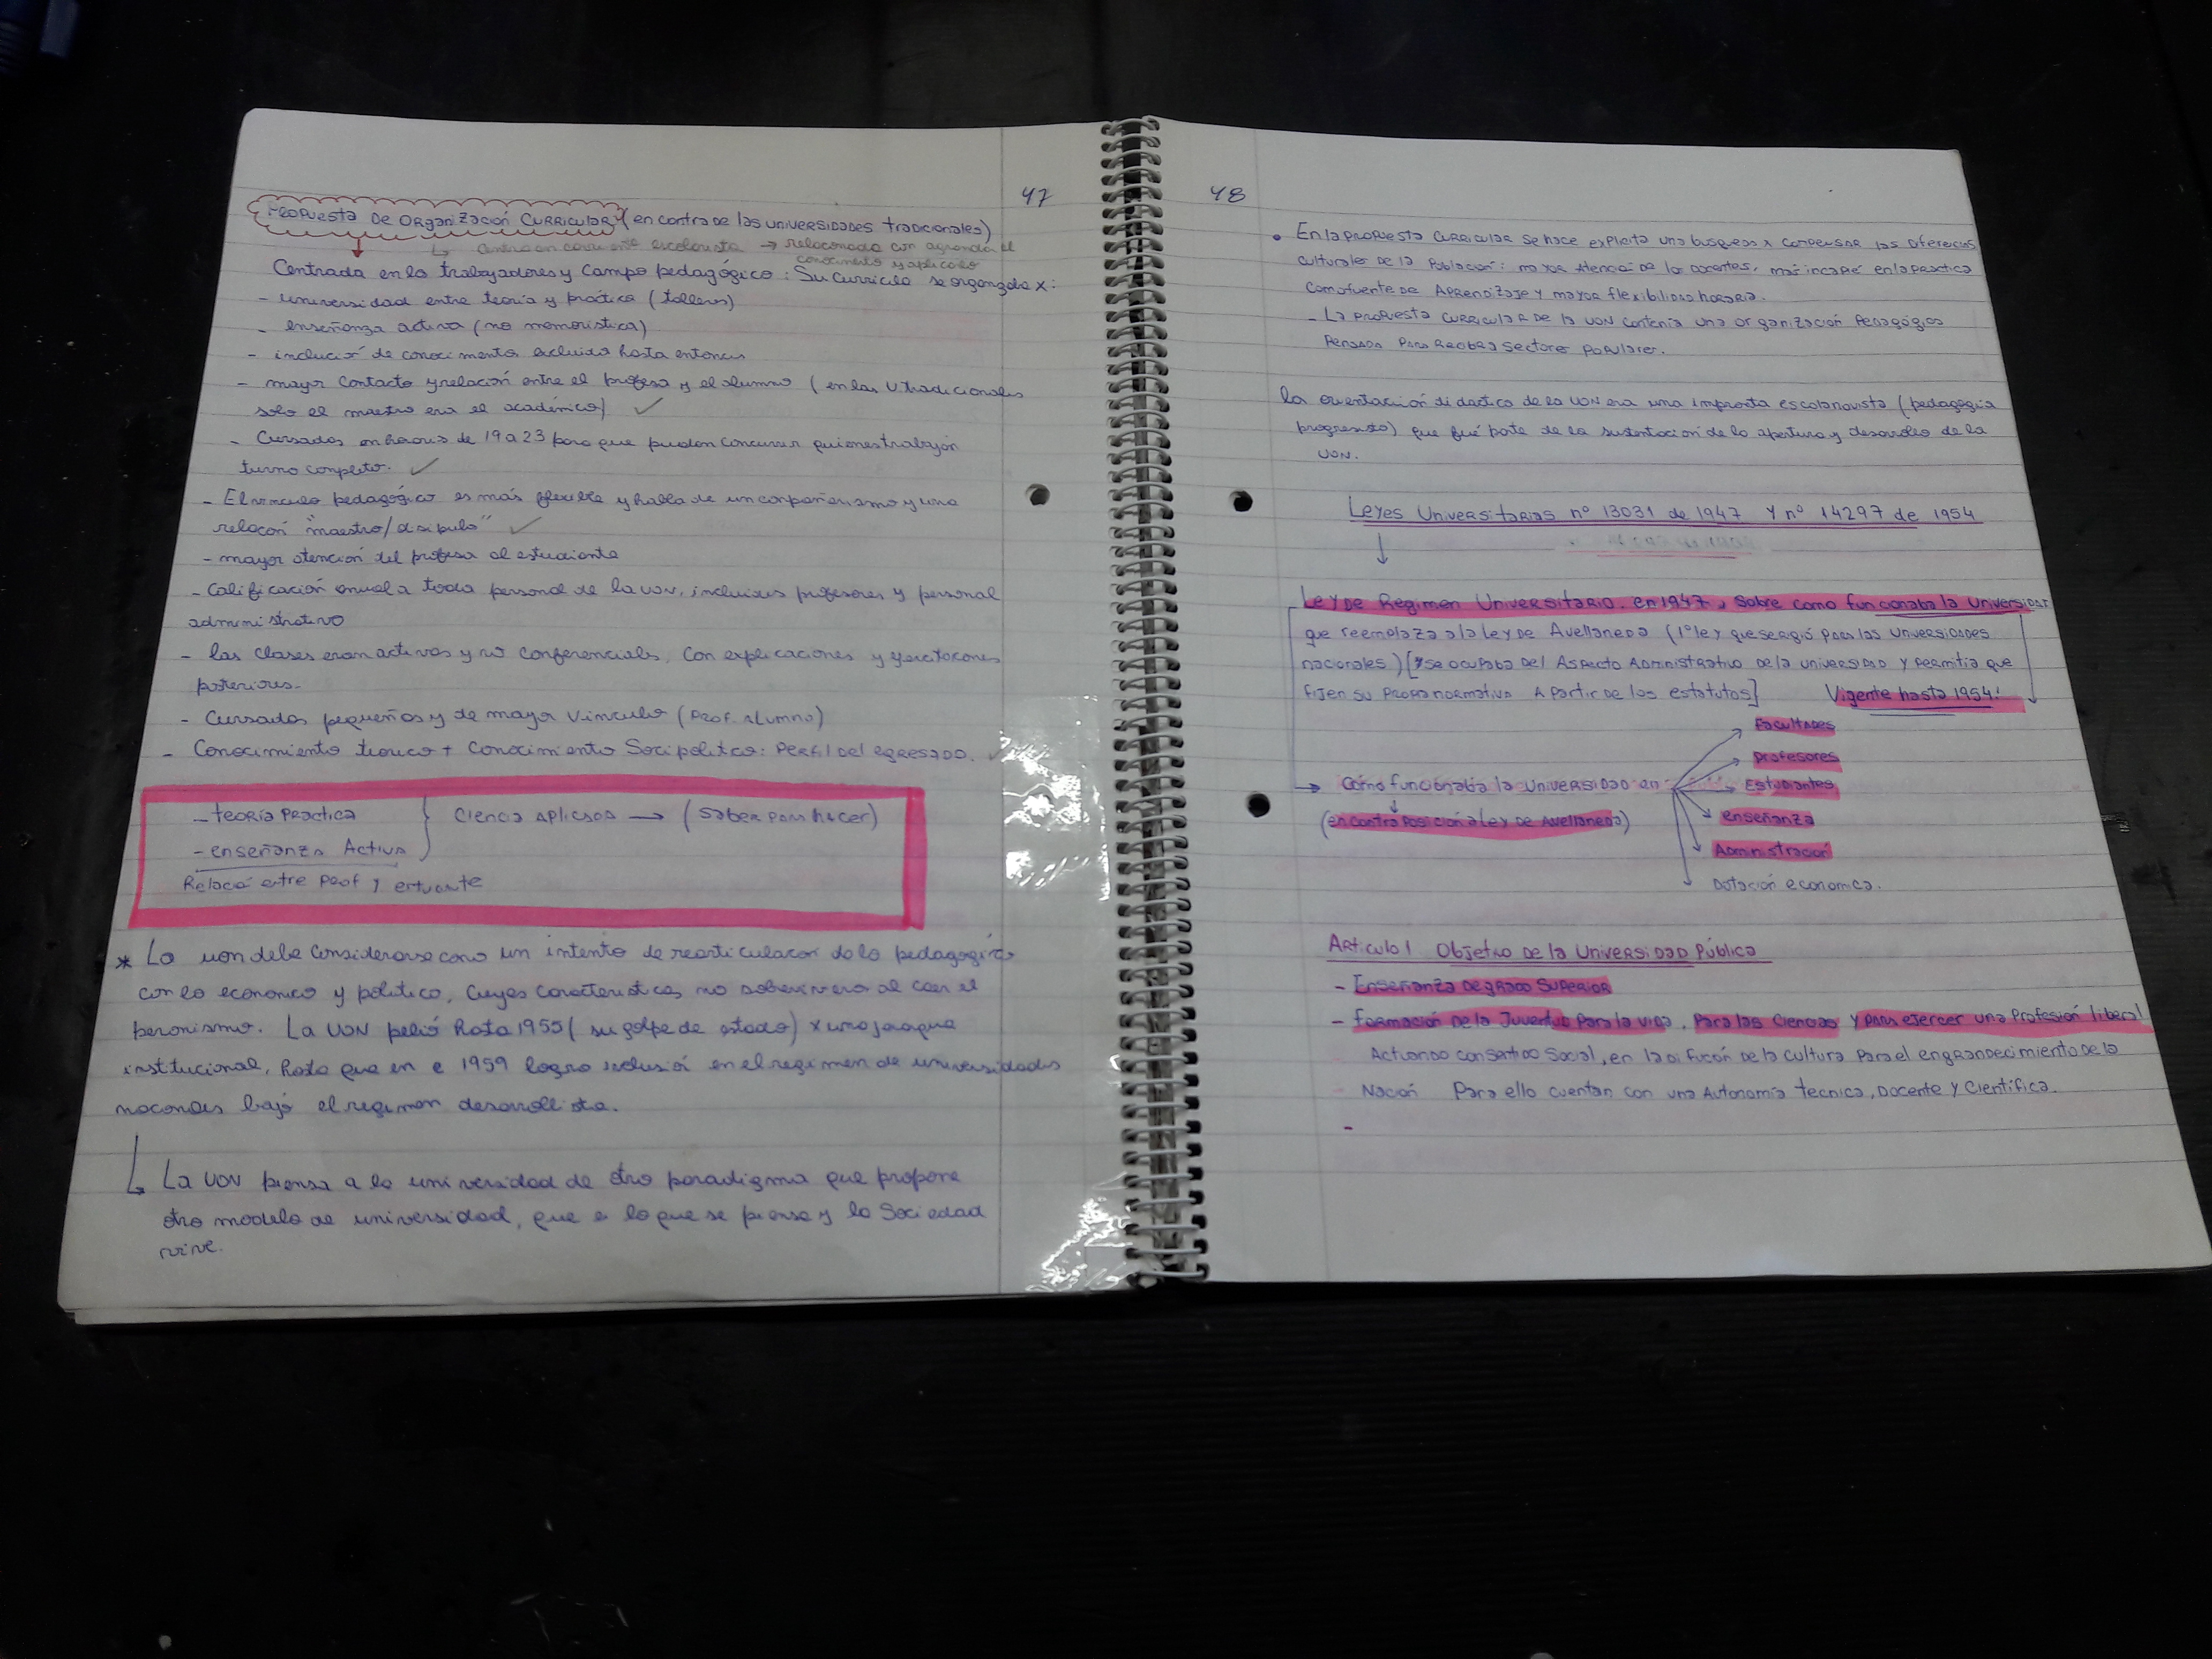 47
Propuesta de Organización Curricular (en contra de las universidades tradicionales)
↳ Centra en corriente escolanovista → relacionada con agrandar el
conocimiento y aplicarlo
Centrada en lo trabajadores y campo pedagógico: Su curricula se organizaba x:
- universidad entre teoría y práctica (talleres)
- enseñanza activa (no memorística)
- inclución de conocimento excluido hasta entonces
- mayor contacto y relación entre el profesor y el alumno (en las U. tradicionales
solo el maestro era el académico) ✓
- Cursadas en horario de 19 a 23 para que puedan concurrir quienes trabajan
turno completo. ✓
- El vinculo pedagógico es más flexible y habla de un compañerismo y una
relación "maestro/discipulo" ✓
- mayor atención del profesor al estudiante
- Calificación anual a todo personal de la UON, incluidos profesores y personal
administrativo
- las clases eran activas y no conferenciales, con explicaciones y ejercitaciones
posteriores.
- Cursadas pequeñas y de mayor vinculo (Prof. Alumno)
- Conocimiento teorico + Conocimiento Socipolitico: Perfil del egresado. ✓
- teoría practica
Ciencia Aplicada → (saber para hacer)
- enseñanza Activa
Relació entre Prof y estuante
* La uon debe considerarse como un intento de rearticulacon de lo pedagógico
con lo economico y politico, cuyas caracteristicas no sobreviviera al caer el
peronismo. La UON peleó hasta 1955 (su golpe de estado) x una jerarquia
institucional, hasta que en e 1959 logro inclusión en el regimen de universidades
nacionales bajó el regimen desarrollista.
↳ La UON piensa a la universidad de otro paradigma que propone
otro modelo de universidad, que es lo que se piensa y la Sociedad
vive.
48
• En la propuesta curricular se hace explicita una busqueda x compensar las diferecias
culturale de la Población: mayor atenció de los docentes, mas incapié en la practica
como fuente de Aprendizaje y mayor flexibilidad horaria.
- La propuesta curricular de la UON contenía una organización Pedagógica
Pensada para recibir a sectore populares.
la orientación didactica de la UON era una impronta escolanovista (pedagogia
progresista) que fué parte de la sustentacion de la apertura y desarrollo de la
UON.
Leyes Universitarias nº 13031 de 1947 y nº 14297 de 1954
↓
Ley de Regimen Universitario. en 1947, sobre como funcionaba la Universidad
que reemplaza a la Ley de Avellaneda (1º ley que se rigió para las universidades
nacionales) [se ocupaba del Aspecto Administrativo de la universidad y permitia que
fijen su propia normativa a partir de los estatutos] Vigente hasta 1954!
Facultades
Profesores
→ Cómo funcionaba la Universidad en Estudiantes
(en contra posición a Ley de Avellaneda) enseñanza
Administración
Dotación economica.
Articulo 1 Objetivo de la Universidad Pública
- Enseñanza de grado Superior
- Formación de la Juventud para la vida, para las Ciencias y para ejercer una profesión liberal
Actuando con sentido Social, en la difución de la cultura para el engrandecimiento de la
Nación Para ello cuentan con una Autonomía tecnica, Docente y Científica.
-